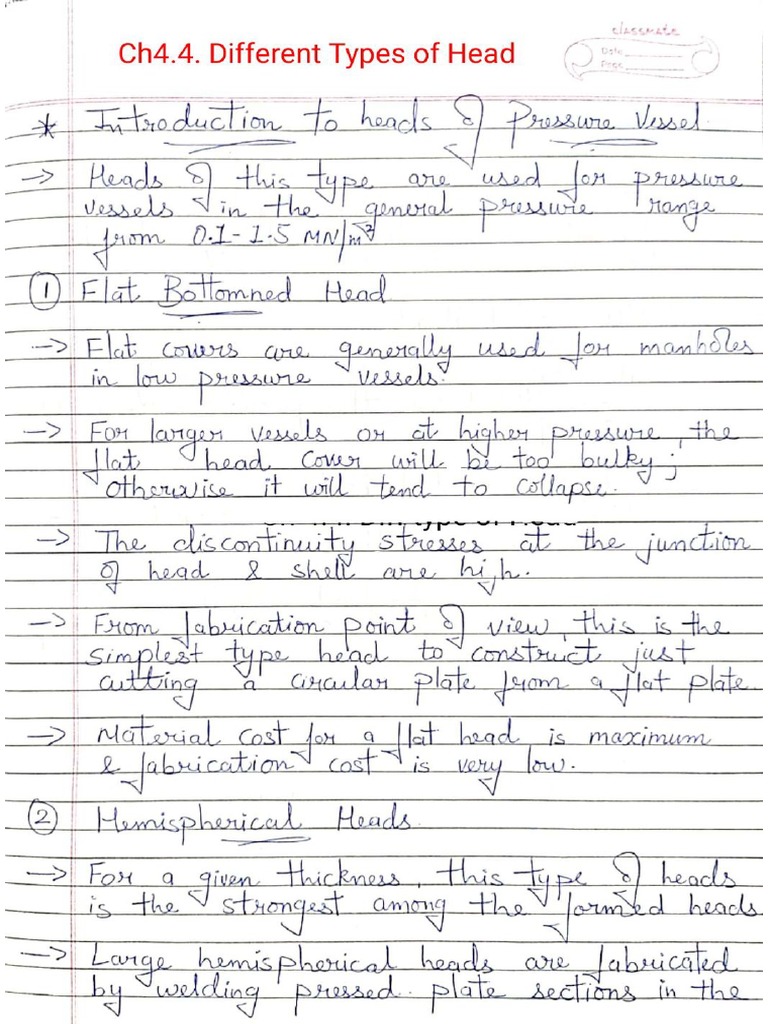 classmate
Date
Page
Ch4.4. Different Types of Head
* Introduction to heads of Pressure Vessel
→ Heads of this type are used for pressure
vessels in the general pressure range
from 0.1-1.5 MN/m²
① Flat Bottomned Head
→ Flat covers are generally used for manholes
in low pressure vessels.
→ For larger vessels or at higher pressure, the
flat head cover will be too bulky;
otherwise it will tend to collapse.
→ The discontinuity stresses at the junction
of head & shell are high.
→ From fabrication point of view, this is the
simplest type head to construct just
cutting a circular plate from a flat plate.
→ Material cost for a flat head is maximum
& fabrication cost is very low.
② Hemispherical Heads.
→ For a given thickness, this type of heads
is the strongest among the formed heads
→ Large hemispherical heads are fabricated
by welding pressed plate sections in the